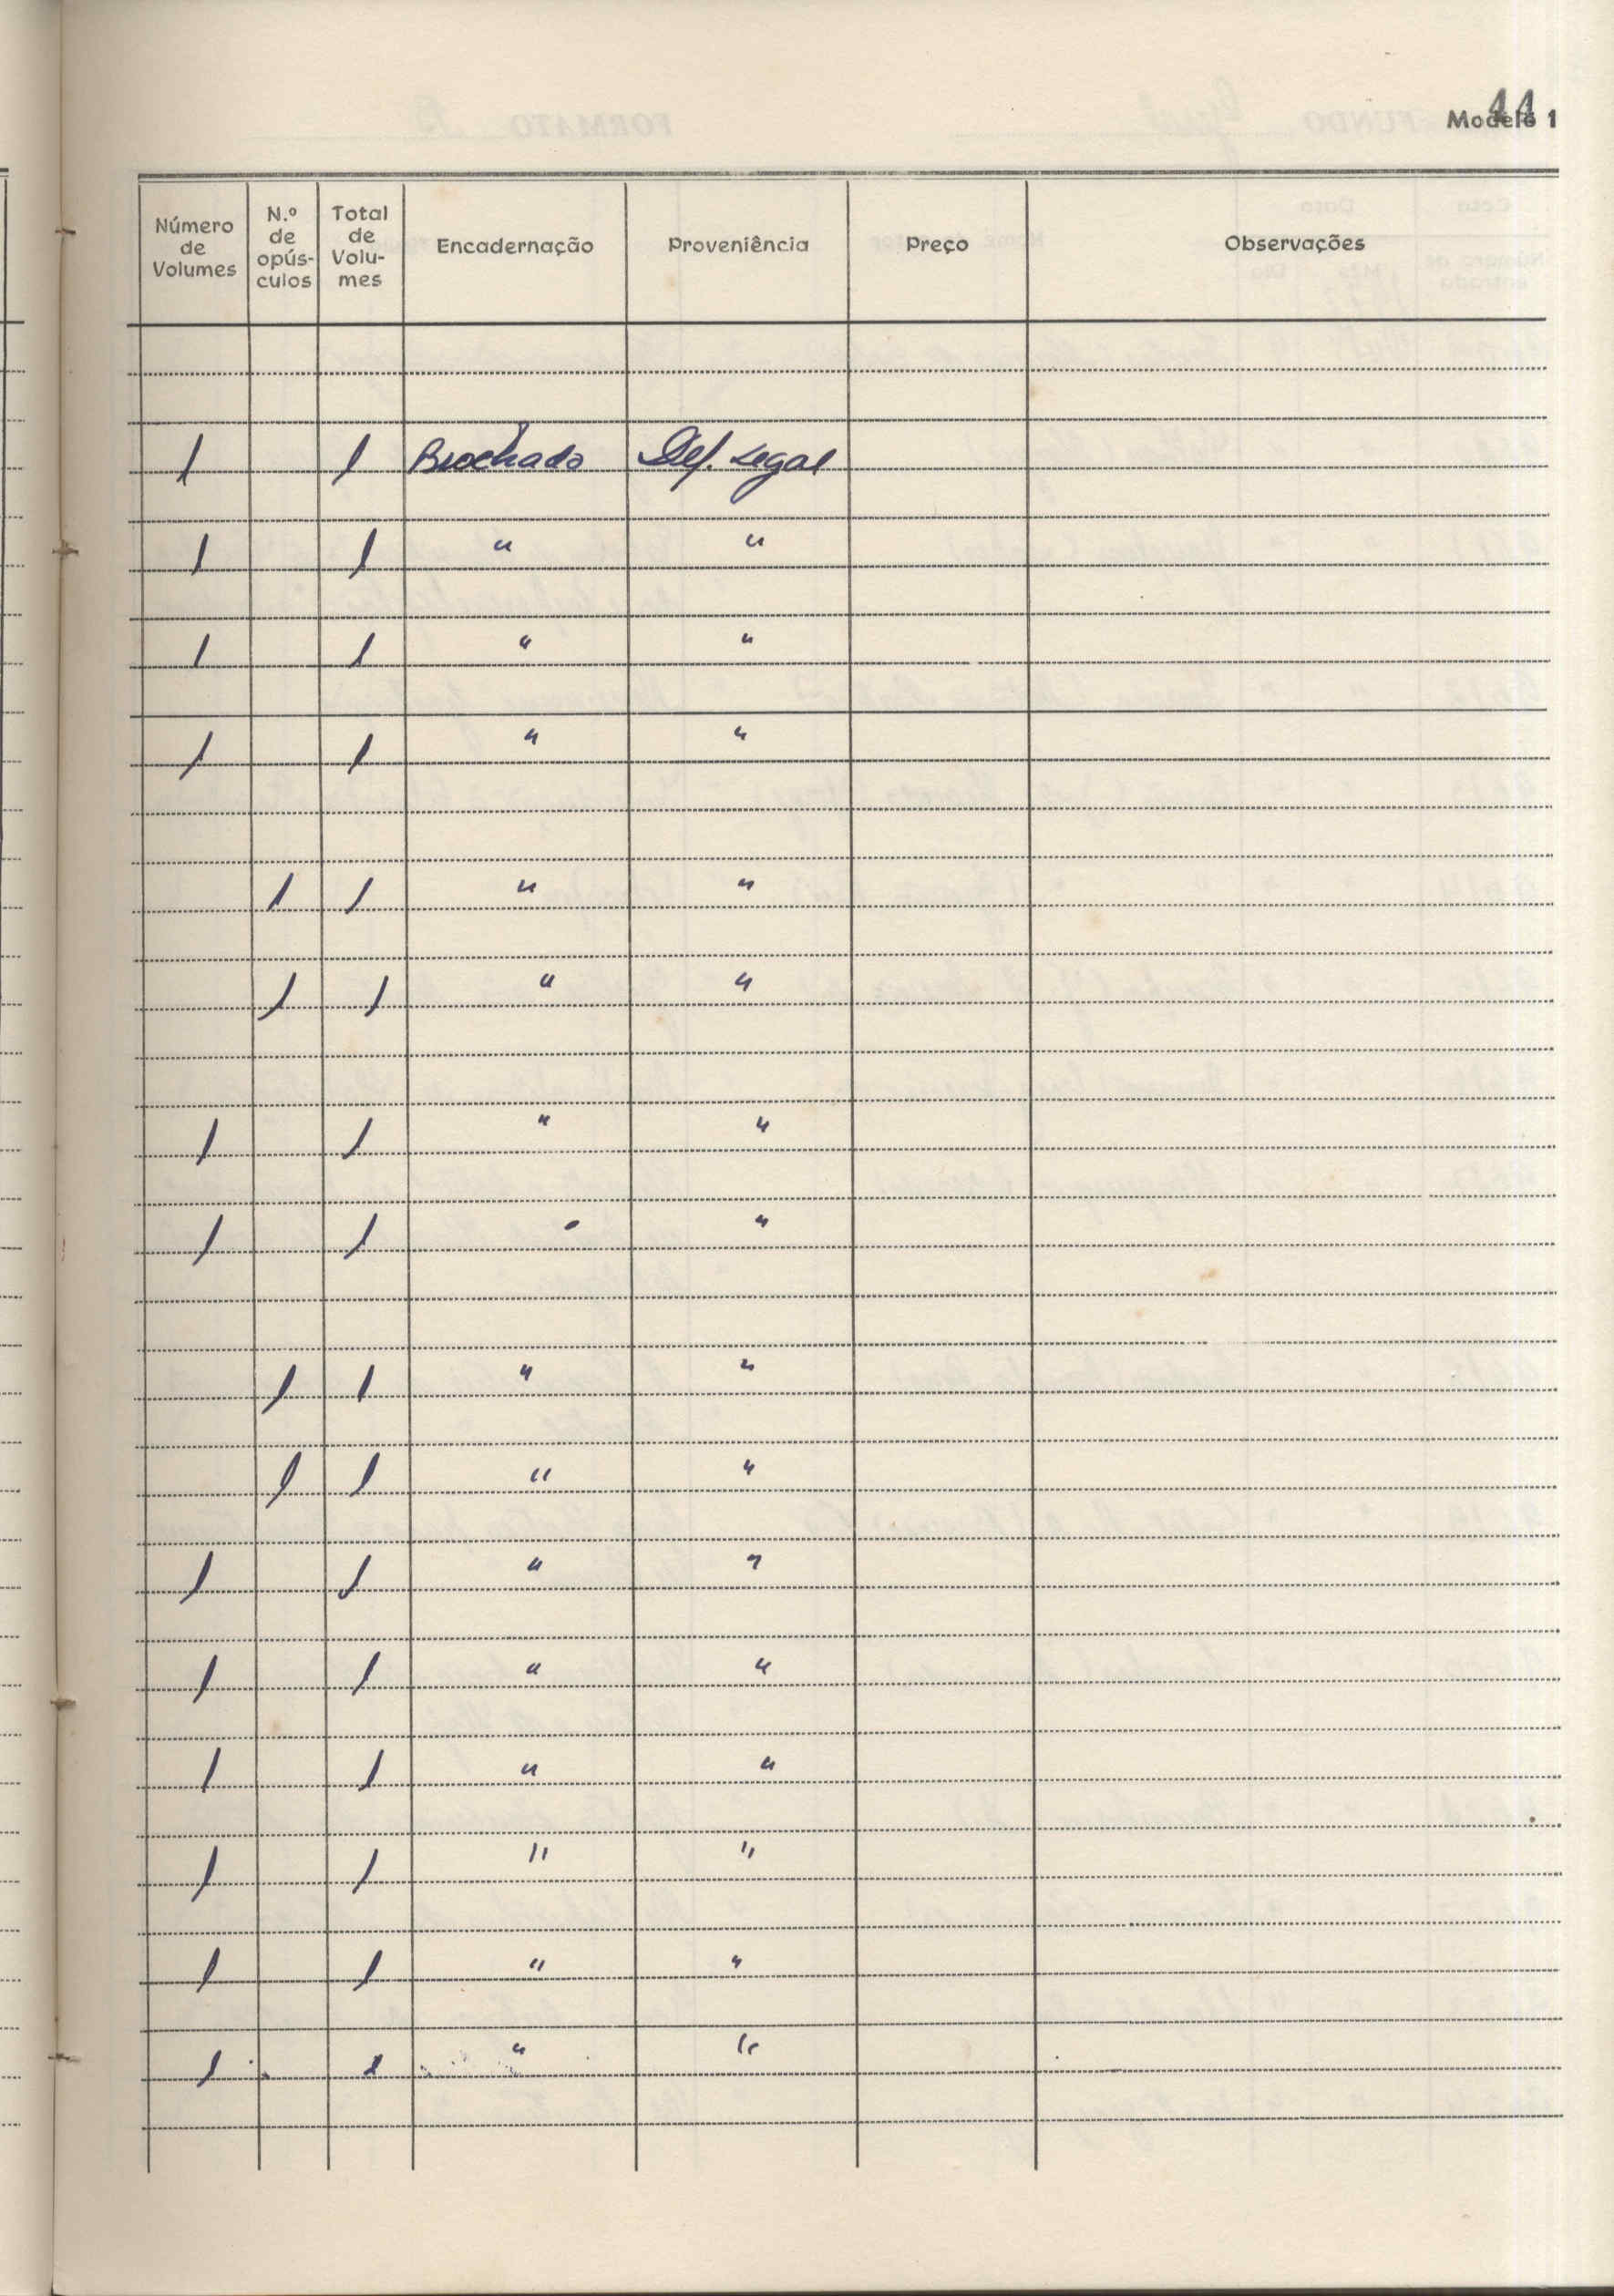 44
Modelo 1
Número de Volumes | N.º de opús- culos | Total de Volu- mes | Encadernação | Proveniência | Preço | Observações
1 | | 1 | Brochado | Dep. Legal
1 | | 1 | " | "
1 | | 1 | " | "
1 | | 1 | " | "
| 1 | 1 | " | "
| 1 | 1 | " | "
1 | | 1 | " | "
1 | | 1 | " | "
| 1 | 1 | " | "
| 1 | 1 | " | "
1 | | 1 | " | "
1 | | 1 | " | "
1 | | 1 | " | "
1 | | 1 | " | "
1 | | 1 | " | "
1 | | 1 | " | "